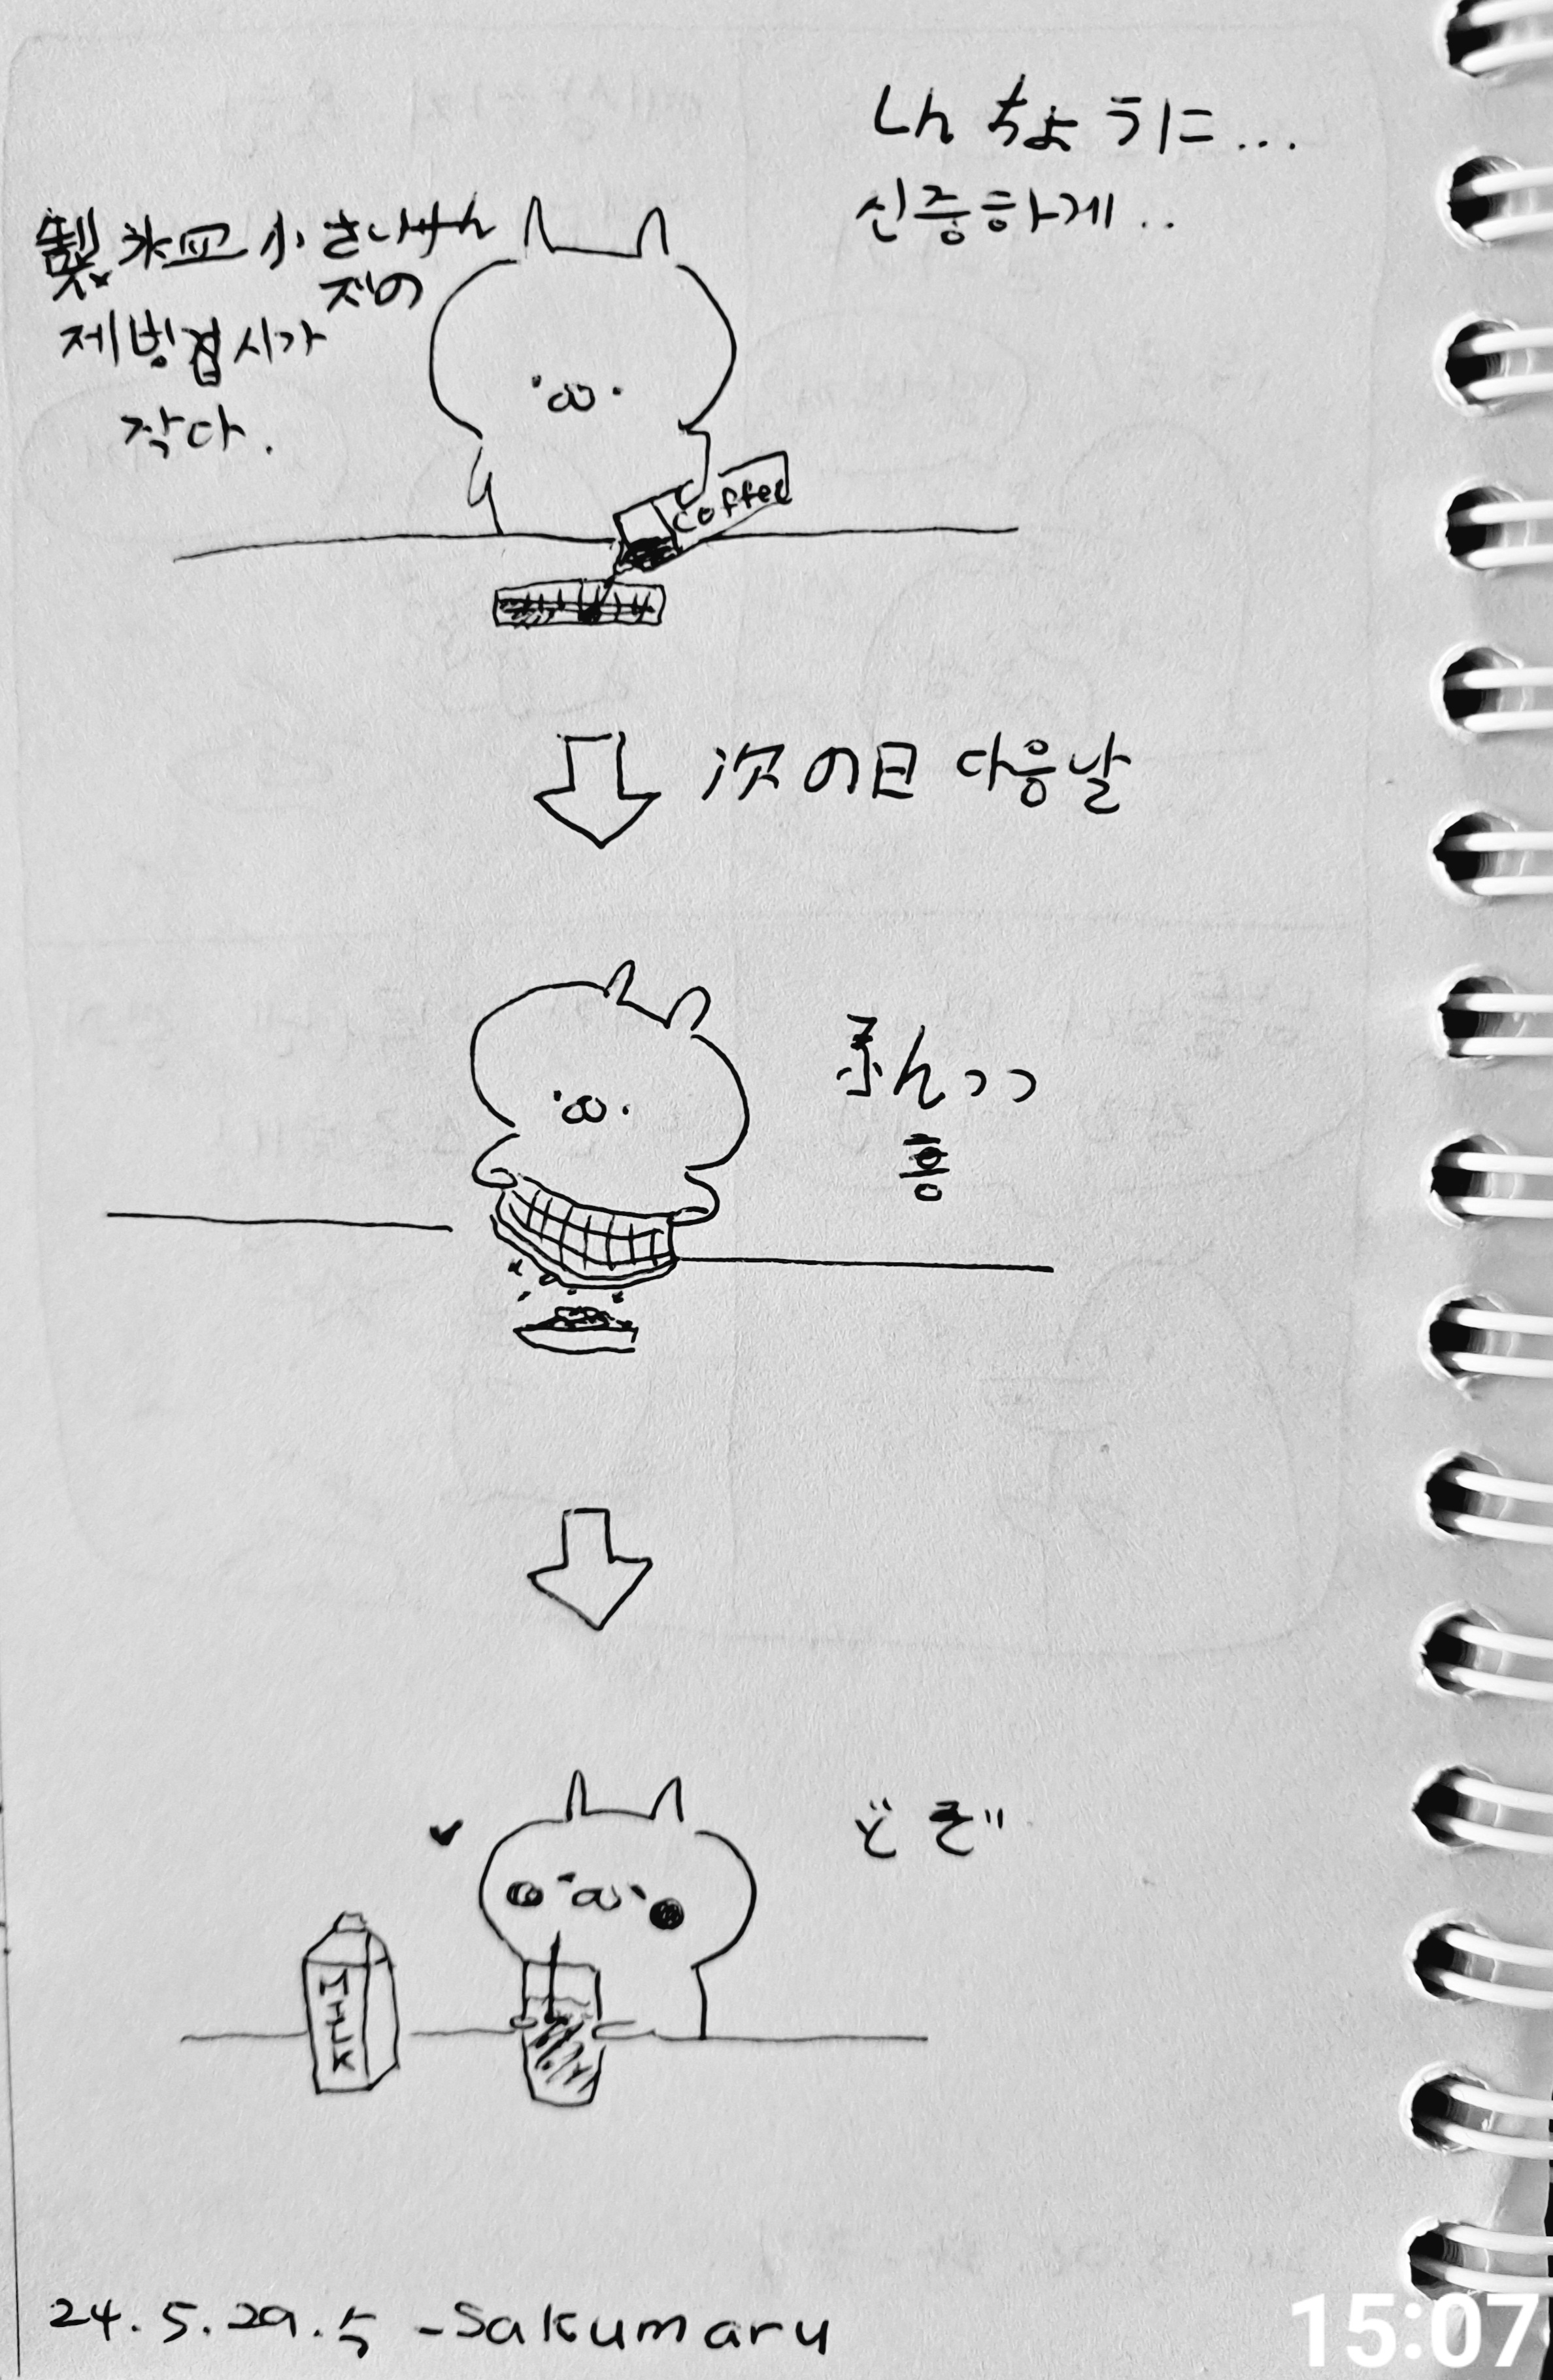 しんちょうに...
신중하게..
製氷皿小さいけん
ズの
제빙접시가
작다.
coffee
次の日 다음날
ふんっっ
흥
どぞ
MILK
24.5.29.5 -Sakumaru
15:07